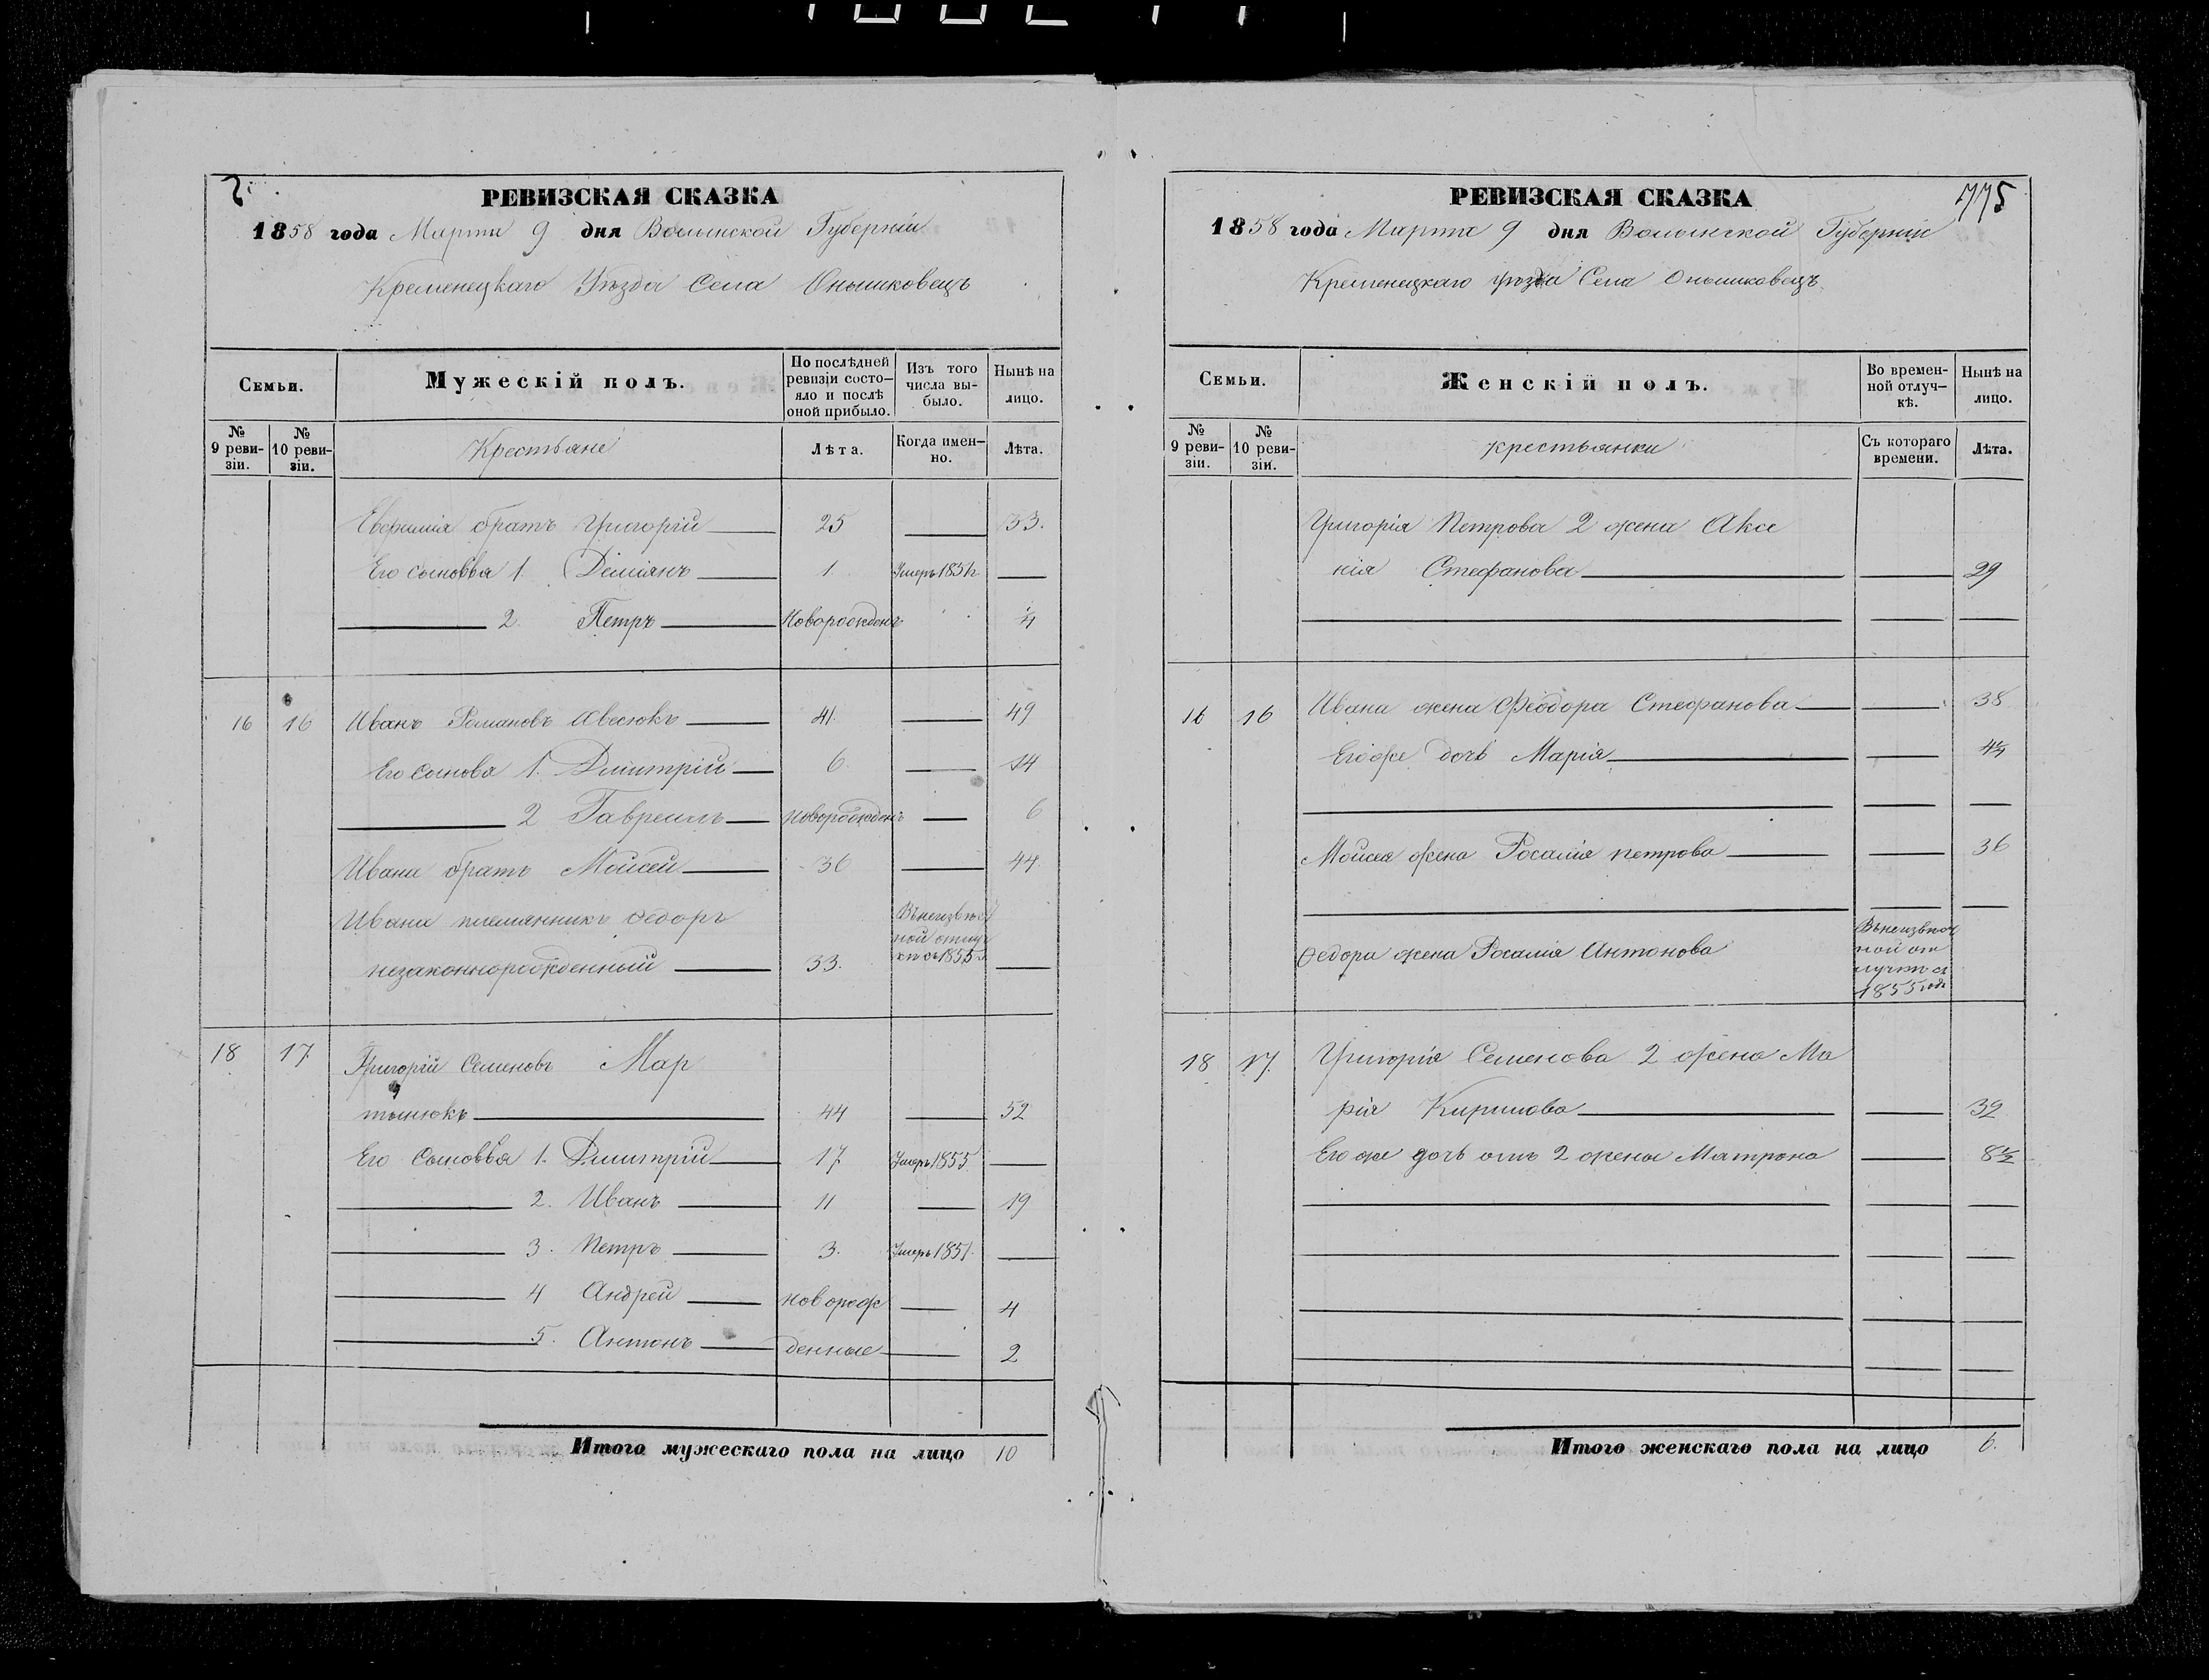 РЕВИЗСКАЯ СКАЗКА
1858 года Марта 9 дня Волынской Губерніи
Кременецкаго Уѣзда Села Онышковецъ
Семьи.
Мужескій полъ.
По послѣдней ревизіи состояло и послѣ оной прибыло.
Изъ того числа выбыло.
Нынѣ на лицо.
№ 9 ревизіи.
№ 10 ревизіи.
Крестьяне
Лѣта.
Когда именно.
Лѣта.
Евфимія братъ Григорій 25 33.
Его сыновья 1. Деміянъ 1. Умеръ
2. Петръ Новорожденъ 4
16 16 Иванъ Романовъ 41. 49
Его сынова 1. Дмитрій 6. 14
2 Гавреилъ новорожденъ 6
Ивана братъ Мойсей 36 44
Ивана племянникъ Федоръ
незаконнорожденный 33.
18 17 Григорій Семеновъ Мар
тынюкъ 44 52
Его Сыновья 1. Дмитрій 17 Умеръ 1855
2. Иванъ 11 19
3. Петръ 3. Умеръ 1851.
4 Андрей новорож 4
5. Антонъ денные 2
Итого мужескаго пола на лицо 10
775
РЕВИЗСКАЯ СКАЗКА
1858 года Марта 9 дня Волынской Губерніи
Кременецкаго уѣзда Села Онышковецъ
Семьи.
Женскій полъ.
Во временной отлучкѣ.
Нынѣ на лицо.
№ 9 ревизіи.
№ 10 ревизіи.
крестьянки
Съ котораго времени.
Лѣта.
Григорія Петрова 2 жена Аксе
нія Стефанова 29
16 16 Ивана жена Феодора Стефанова 38
Его же дочь Марія
Мойсея жена Росалія петрова 36
Федора жена Росалія Антонова
1855 года
18 17. Григорія Семенова 2 жена Ма
рія Кирилова 32
Его же дочь отъ 2 жены Матрона 8½
Итого женскаго пола на лицо 6.